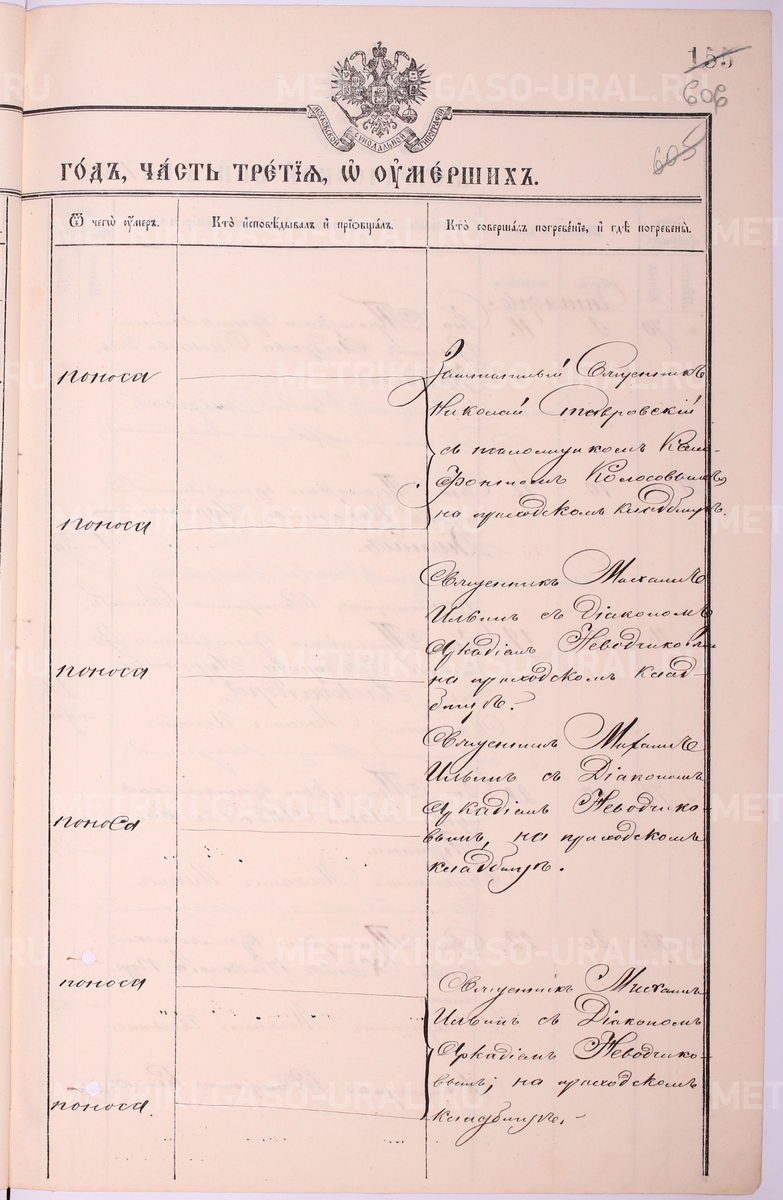 155
606
605
МОСКОВСКОЙ СѴНОДАЛЬНОЙ ТИПОГРАФІИ
ГО́ДЪ, ЧА́СТЬ ТРЕ́ТІЯ, Ѡ҆ ОУ҆МЕ́РШИХЪ.
Ѿ чегѡ̀ ᲂу҆́меръ.
Кто̀ и҆сповѣ́дывалъ и҆ прїѡбща́лъ.
Кто̀ соверша́лъ погребе́нїе, и҆ гдѣ̀ погребены̀.
поноса
Заштатный Священникъ
Николай Тавровскій
съ псаломщикомъ
Колосовымъ,
на приходскомъ кладбищѣ.
поноса
Священникъ Михаилъ
Ильинъ съ Діакономъ
Аркадіемъ Неводчиковымъ
на приходскомъ клад-
бищѣ.
поноса
Священникъ Михаилъ
Ильинъ съ Діакономъ
Аркадіемъ Неводчико-
вымъ, на приходскомъ
кладбищѣ.
поноса
поноса
Священникъ Михаилъ
Ильинъ съ Діакономъ
Аркадіемъ Неводчико-
вымъ, на приходскомъ
кладбищѣ.
поноса
METRIKI.GASO-URAL.RU